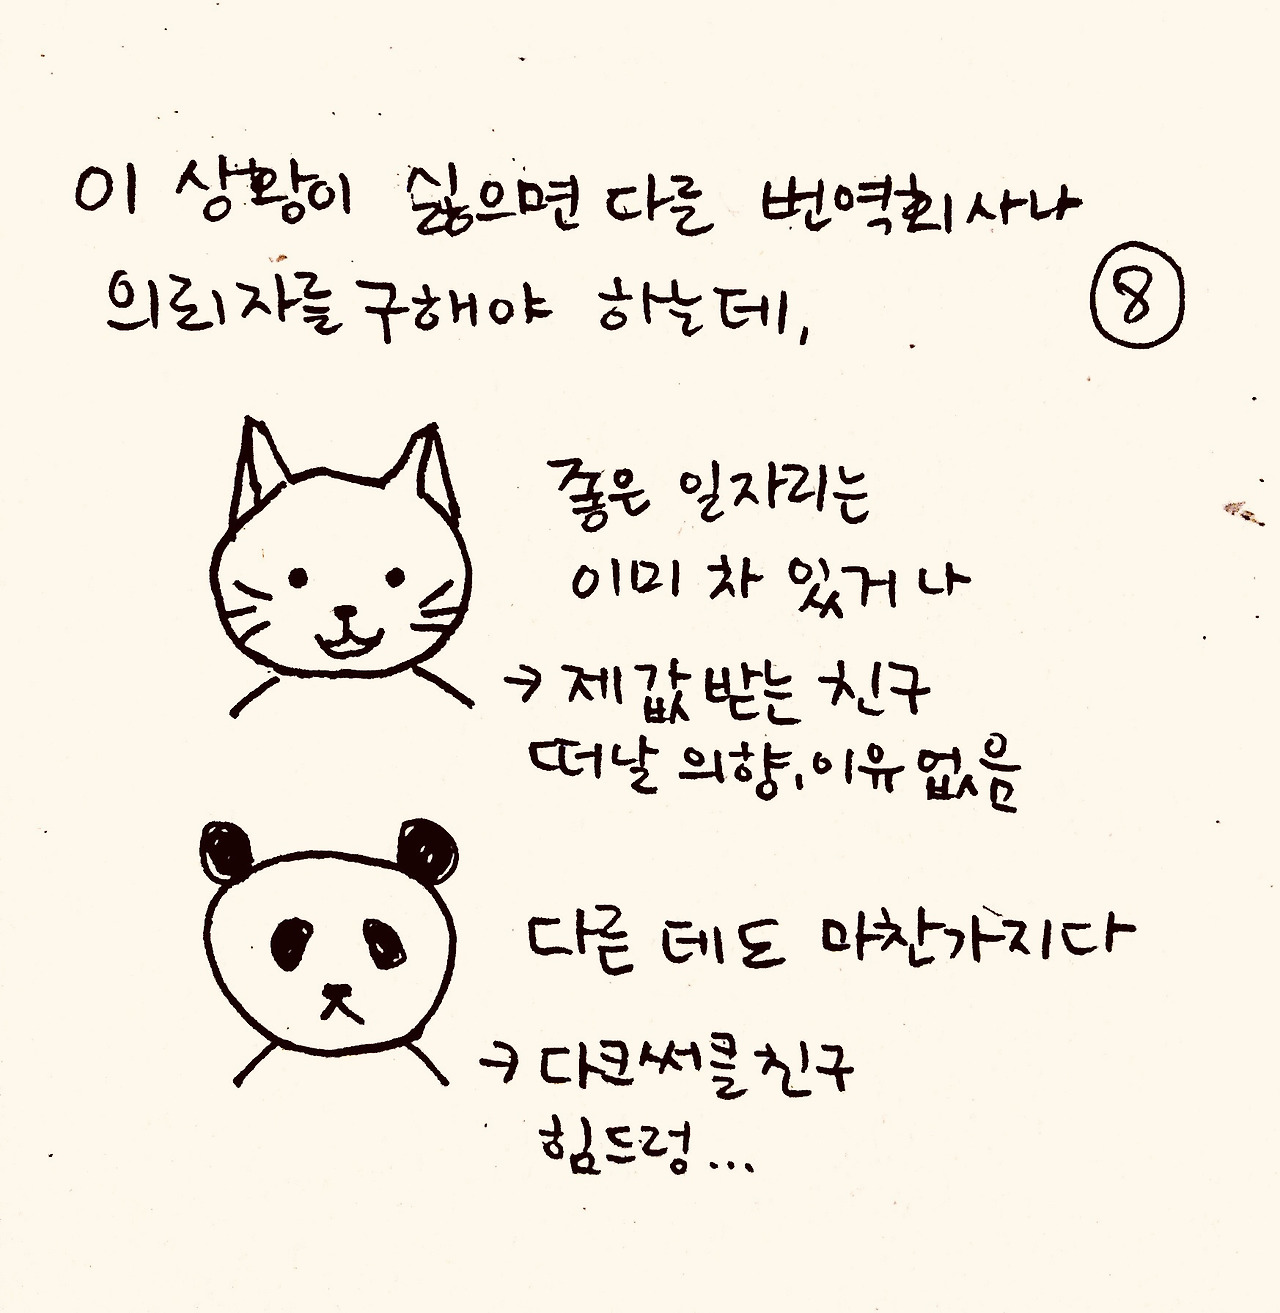 이 상황이 싫으면 다른 번역회사나
의뢰자를 구해야 하는데,
8
좋은 일자리는
이미 차 있거나
→ 제값 받는 친구
떠날 의향, 이유 없음
다른 데도 마찬가지다
→ 다크써클 친구
힘드렁...